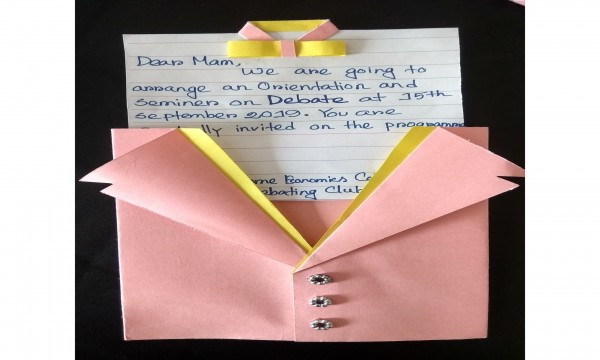 Dear Mam,
We are going to
arrange an Orientation and
Seminer on Debate at 15th
September 2019. You are
invited on the programme
Economics
Debating Club